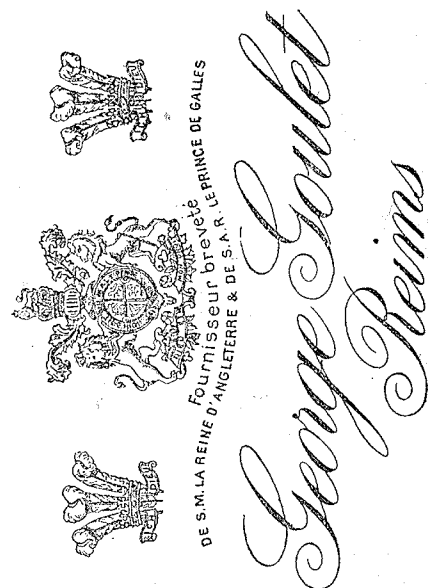 Fournisseur breveté
DE S.M. LA REINE D'ANGLETERRE & DE S.A.R. LE PRINCE DE GALLES
George Goulet
Reims